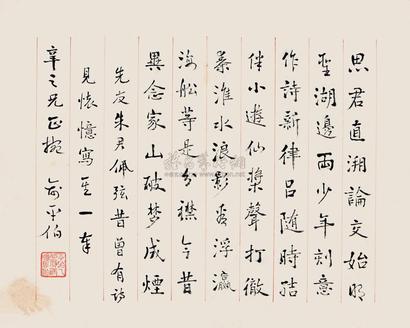 思君直溯論交始明
聖湖邊兩少年刻意
作詩新律呂隨時結
伴小遊仙槳聲打徹
秦淮水浪影看浮瀛
海船等是分襟今昔
異念家山破夢成煙
先友朱君佩弦昔曾有詩
見懷憶寫其一奉
辛之兄正拍
俞平伯